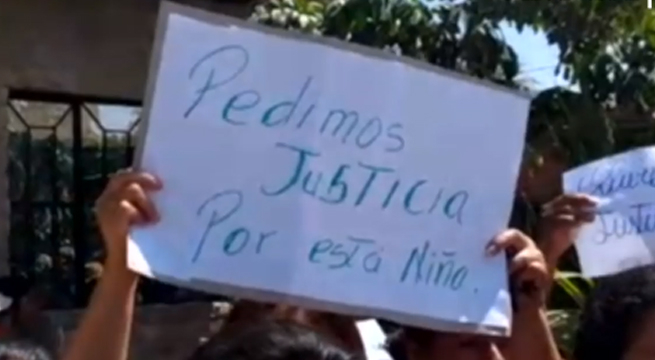 Pedimos
JUSTICIA
Por esta Niño.
Justi